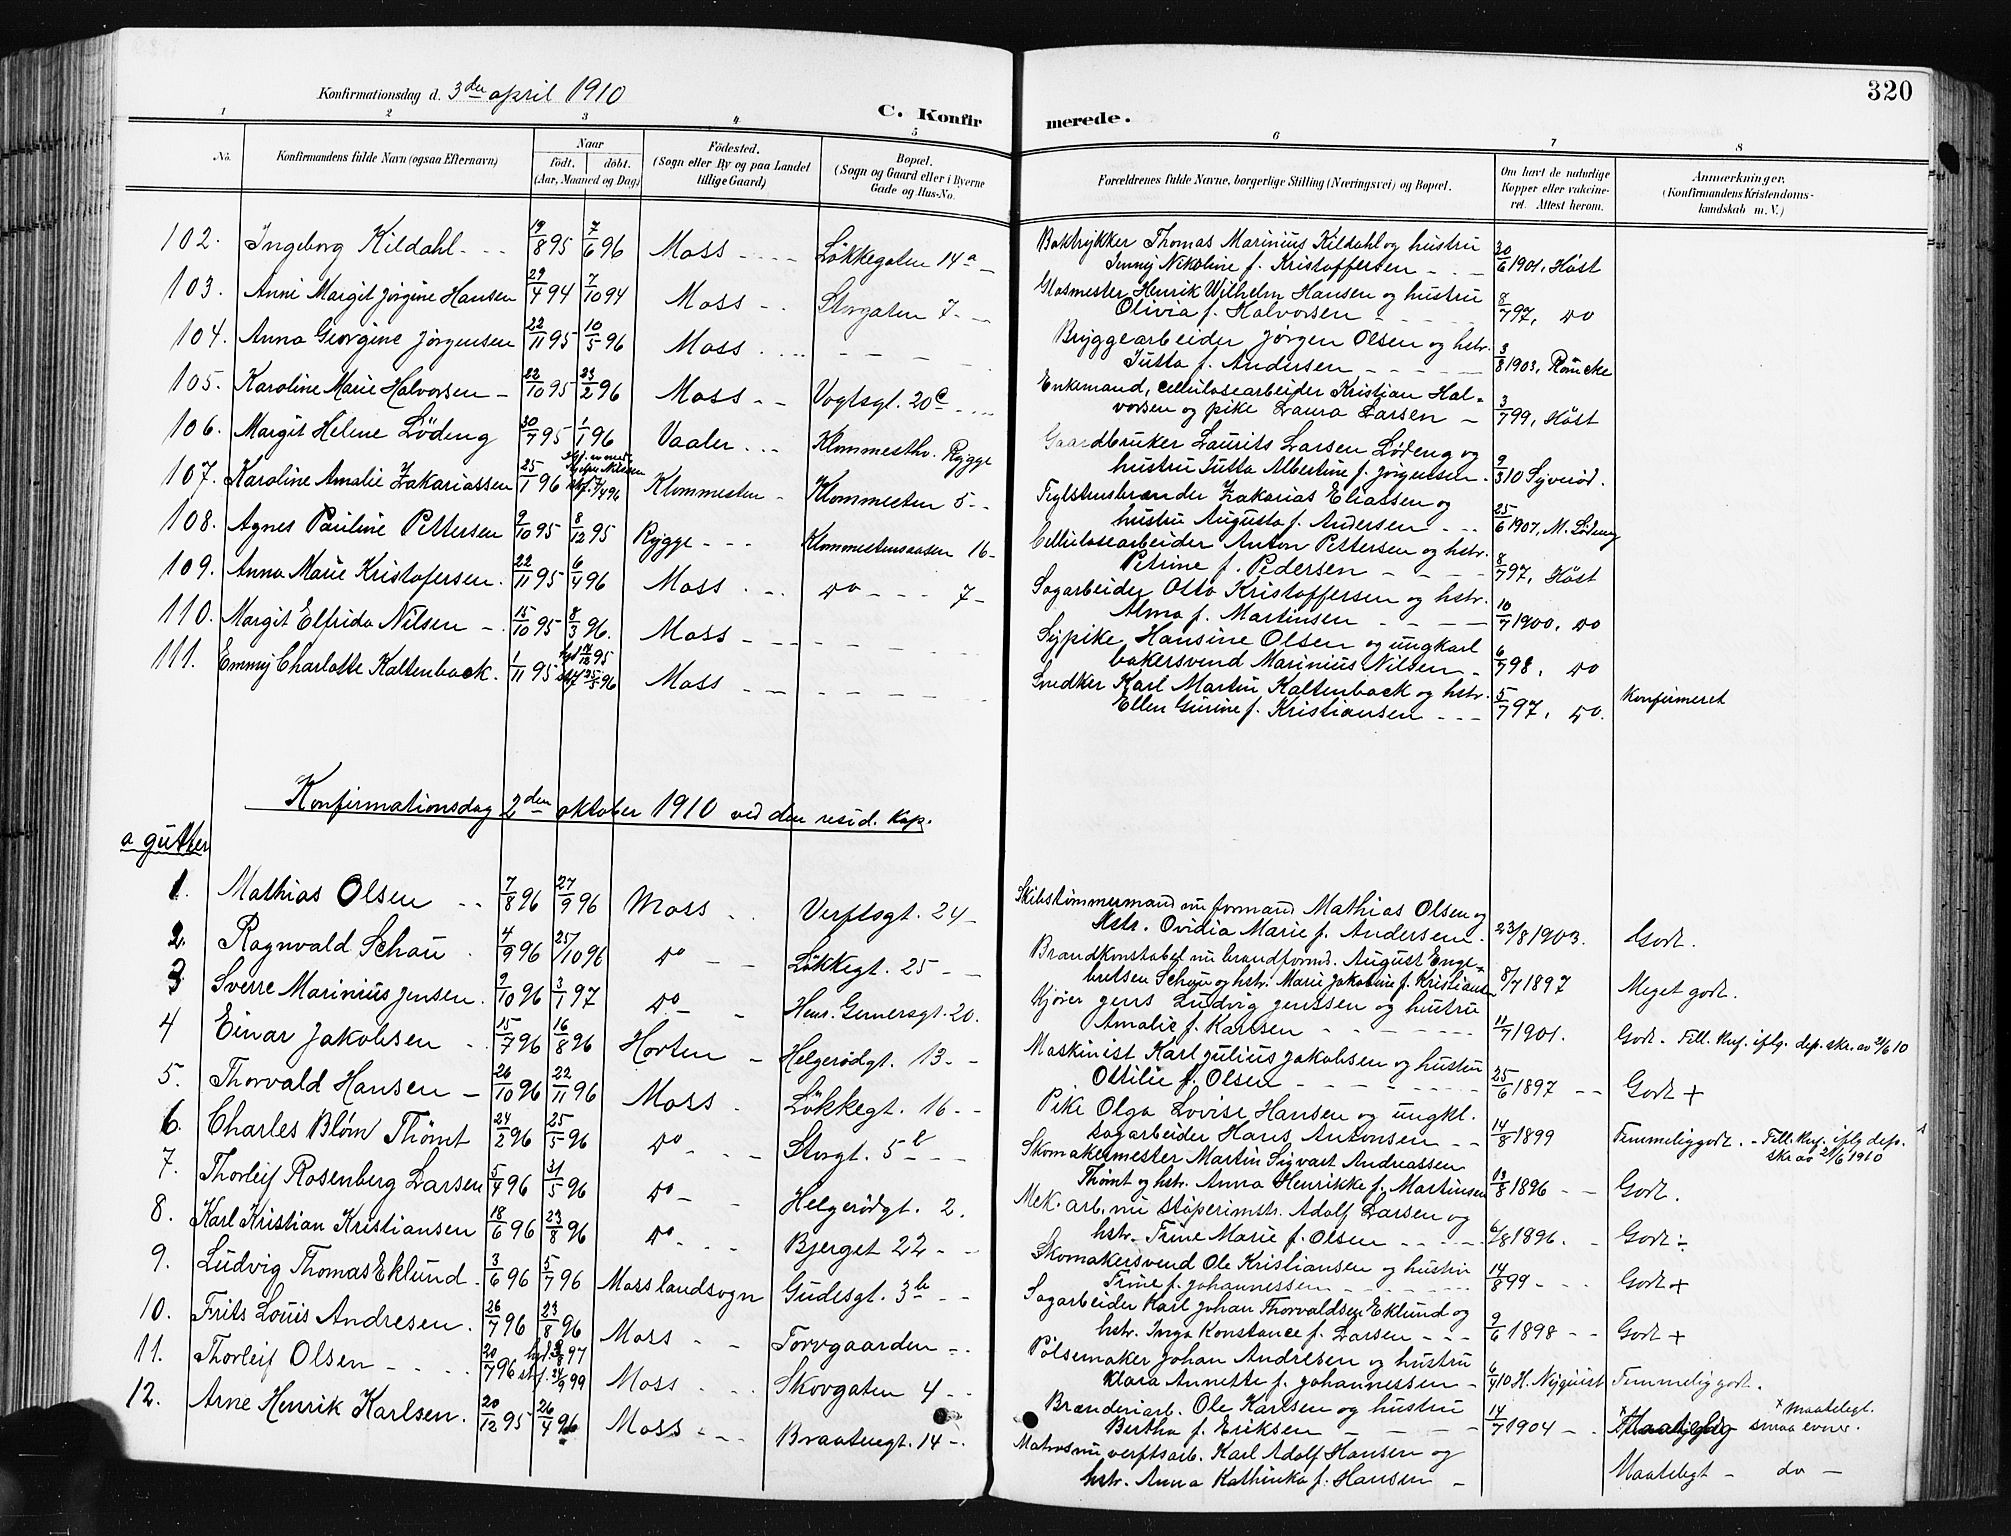 320
Konfirmationsdag d. 3die april 1910
C. Konfirmerede.
1 2 3 4 5 6 7 8
No. Konfirmandens fulde Navn (ogsaa Efternavn) Naar født. døbt. (Aar, Maaned og Dag) Fødested. (Sogn eller By og paa Landet tillige Gaard) Bopæl. (Sogn og Gaard eller i Byerne Gade og Hus-No. Forældrenes fulde Navne, borgerlige Stilling (Næringsvei) og Bopæl. Om havt de naturlige Kopper eller vakcineret. Attest herom. Anmærkninger. (Konfirmandens Kristendomskundskab m. V.)
102. Ingeborg Kildahl 19/8 95 7/6 96 Moss Løkkegaten 14a Boktrykker Thomas Marinius Kildahl og hustru
Jenny Nikoline f. Kristoffersen 30/6 1901, Høst
103. Anni Margit Jørgine Hansen 29/4 94 7/10 94 Moss Storgaten 7 Glasmester Henrik Wilhelm Hansen og hustru
Olivia f. Halvorsen 8/7 97, do
104. Anna Georgine Jørgensen 22/11 95 10/5 96 Moss Bryggearbeider Jørgen Olsen og hstr.
Jutta f. Andersen 3/8 1903, Römcke
105. Karoline Marie Halvorsen 22/10 95 23/2 96 Moss Vogtsgt. 20c Enkemand, cellulosearbeider Kristian Hal-
vorsen og pike Laura Larsen 3/7 99, Høst
106. Margit Helene Lödeng 30/7 95 1/1 96 Vaaler Klommesthv. Rygge Gaardbruker Laurits Larsen Lødeng og
hustru Jutta Albertine f. Jørgensen 9/3 10 Syverød.
107. Karoline Amalie Zakariassen 25/1 96 stf. 7/4 96 Klommesten Klommesten 5 Teglstensbrænder Zakarias Eliassen og
hustru Augusta f. Andersen 25/6 1907, M. Lödeng
108. Agnes Pauline Pettersen 9/10 95 8/12 95 Rygge Klommestensaasen 16 Cellulosearbeider Anton Pettersen og hstr.
Petrine f. Pedersen 8/7 97, Høst
109. Anna Marie Kristofersen 22/11 95 6/4 96 Moss do 7 Sagarbeider Otto Kristoffersen og hstr.
Alma f. Martinsen 10/7 1900, do
110. Margit Elfrida Nilsen 15/10 95 8/3 96. Moss Sypike Hansine Olsen og ungkarl
bakersvend Marinius Nilsen 6/7 98, do
111. Emmy Charlotte Kaltenback. 1/11 95 Moss Snedker Karl Martin Kaltenback og hstr.
Ellen Gurine f. Kristiansen 5/7 97, do. Konfirmeret
Konfirmationsdag 2den oktober 1910 ved den resid. Kap.
a gutter
1. Mathias Olsen 7/8 96 27/9 96 Moss Verftsgt. 24 Skibstømmermand nu formand Mathias Olsen og
Hstr. Ovidia Marie f. Andersen 23/8 1903. Godt.
2. Ragnvald Schau 4/9 96 25/10 96 do Løkkegt. 25 Brandkonstabel nu brandformd. August Enge-
bretsen Schau og hstr. Marie Jakobine f. Kristiansen 8/7 1897 Meget godt.
3 Sverre Marinius Jensen 9/10 96 3/1 97 do Henr. Gernersgt. 20. Kjører Jens Ludvig Jenssen og hustru
Amalie f. Karlsen 11/7 1901. Godt - Till. Knf. iflg. dep. skr. av 21/6 10
4 Einar Jakobsen 15/7 96 16/8 96 Horten Helgerødgt. 13 Maskinist Karl Julius Jakobsen og hustru
Ottilie f. Olsen 25/6 1897 Godt +
5. Thorvald Hansen 26/10 96 22/11 96 Moss Løkkegt. 16 Pike Olga Lovise Hansen og ungkl.
sagarbeider Hans Antonsen 14/8 1899 Temmelig godt. - Till. Knf. iflg dep. skr av 21/6 1910
6. Charles Blöm Thømt 24/2 96 25/5 96 do Storgt. 5b Skomakermester Martin Sigvart Andreassen
Thømt og hstr. Anna Henrikke f. Martinsen 12/8 1896 Godt.
7. Thorleif Rosenberg Larsen 5/4 96 31/5 96 do Helgerødgt. 2. Mek. arb. nu støperimstr. Adolf Larsen og
hstr. Trine Marie f. Olsen 6/8 1896. Godt ÷
8. Karl Kristian Kristiansen 18/6 96 23/8 96 do Bjerget 22 Skomakersvend Ole Kristiansen og hustru
Trine f. Johannessen 14/8 99 Godt +
9. Ludvig Thomas Eklund 3/6 96 5/7 96 Moss landsogn Gudesgt. 3b Sagarbeider Karl Johan Thorvaldsen Eklund og
hstr. Inga Konstance f. Larsen 9/6 1898 Godt +
10. Frits Louis Andresen 26/7 96 23/8 96 Moss Torvgaarden Pölsemaker Johan Andresen og hustru
Klara Annette f. Johannessen 6/4 10 H. Nyquist Temmelig godt.
11. Thorleif Olsen 20/7 96 stf. 24/9 99 Moss Skovgaten 4 Brænderiarb. Ole Karlsen og hustru
Bertha f. Eriksen 14/7 1904 x maateligt. smaa evner.
12. Arne Henrik Karlsen. 20/12 95 26/4 96 Moss Braatengt. 14 Matros nu verftsarb. Karl Adolf Hansen og
hstr. Anna Kathinka f. Hansen Maateligt - do -